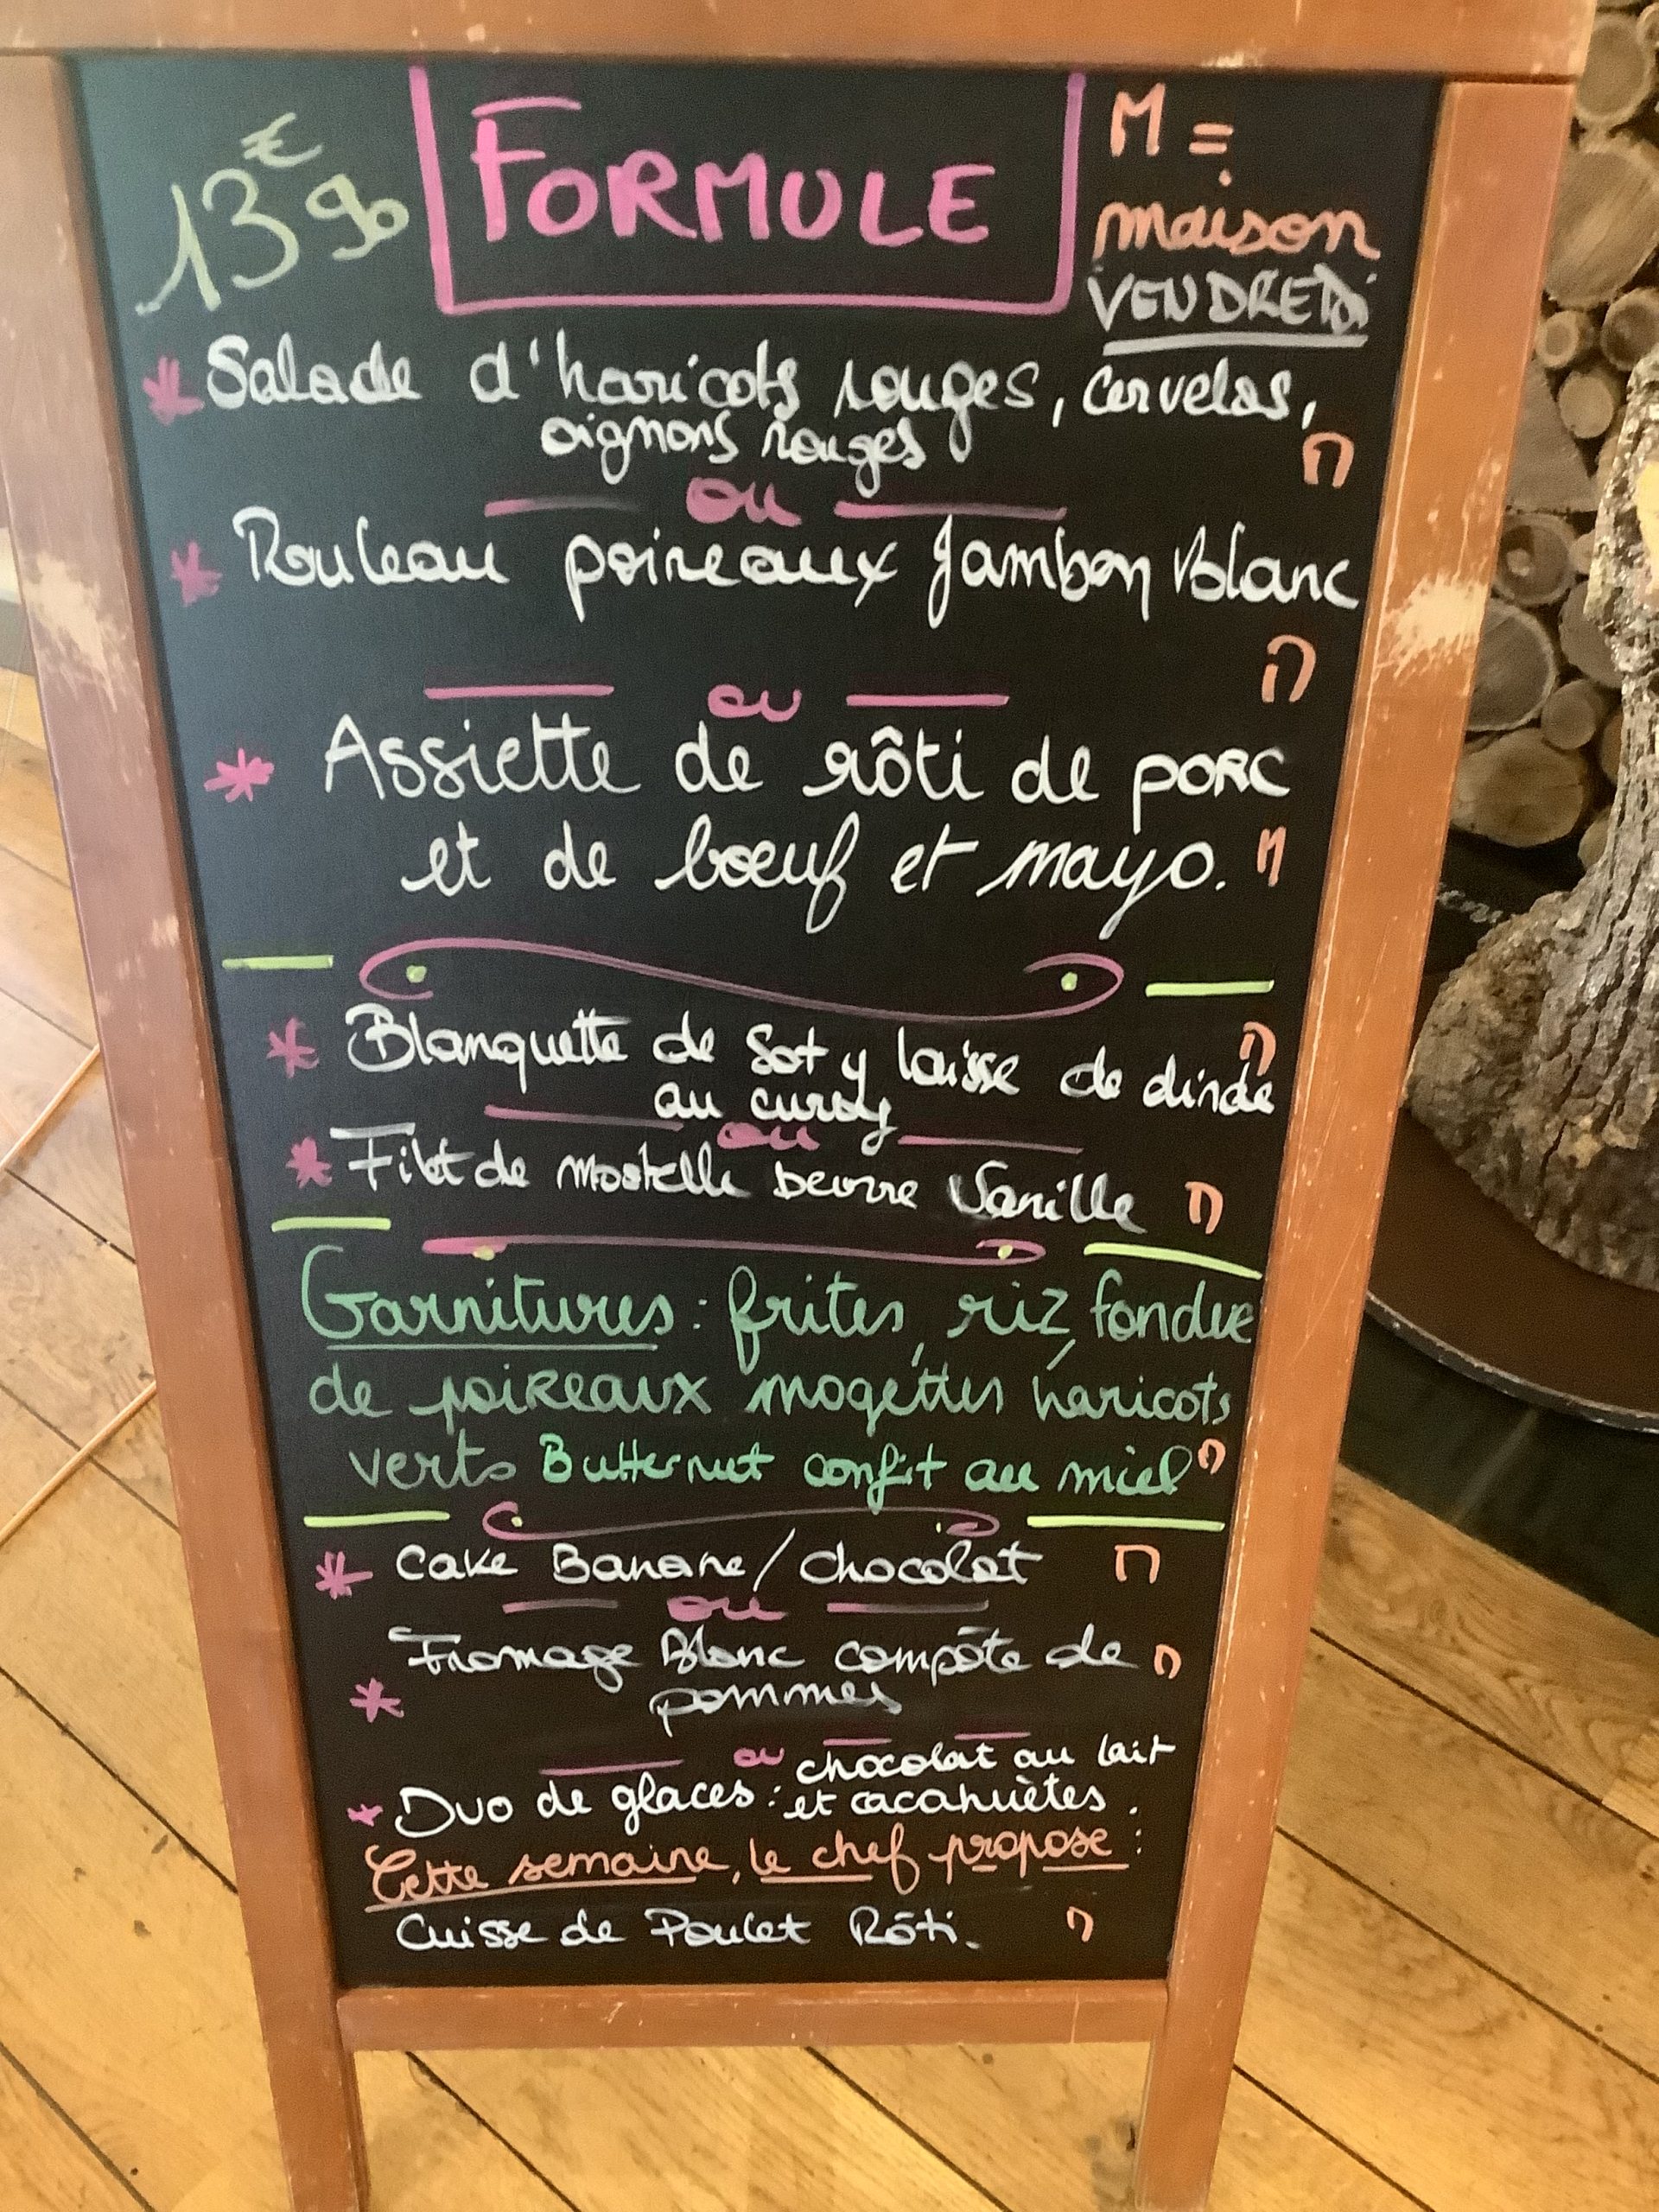 13€90
FORMULE
M =
maison
VENDREDI
* Salade d'haricots rouges, cervelas,
oignons rouges M
ou
* Rouleau poireaux Jambon Blanc
M
ou
* Assiette de rôti de porc
et de bœuf et mayo. M
* Blanquette de Sot y laisse de dinde M
au curry
ou
* Filet de mostelle beurre Vanille M
Garnitures : frites, riz, fondue
de poireaux mogettes haricots
verts Butternut confit au miel M
* Cake Banane/chocolat M
ou
Fromage Blanc compôte de M
* pommes
ou chocolat au lait
* Duo de glaces : et cacahuètes.
Cette semaine, le chef propose :
Cuisse de Poulet Rôti. M